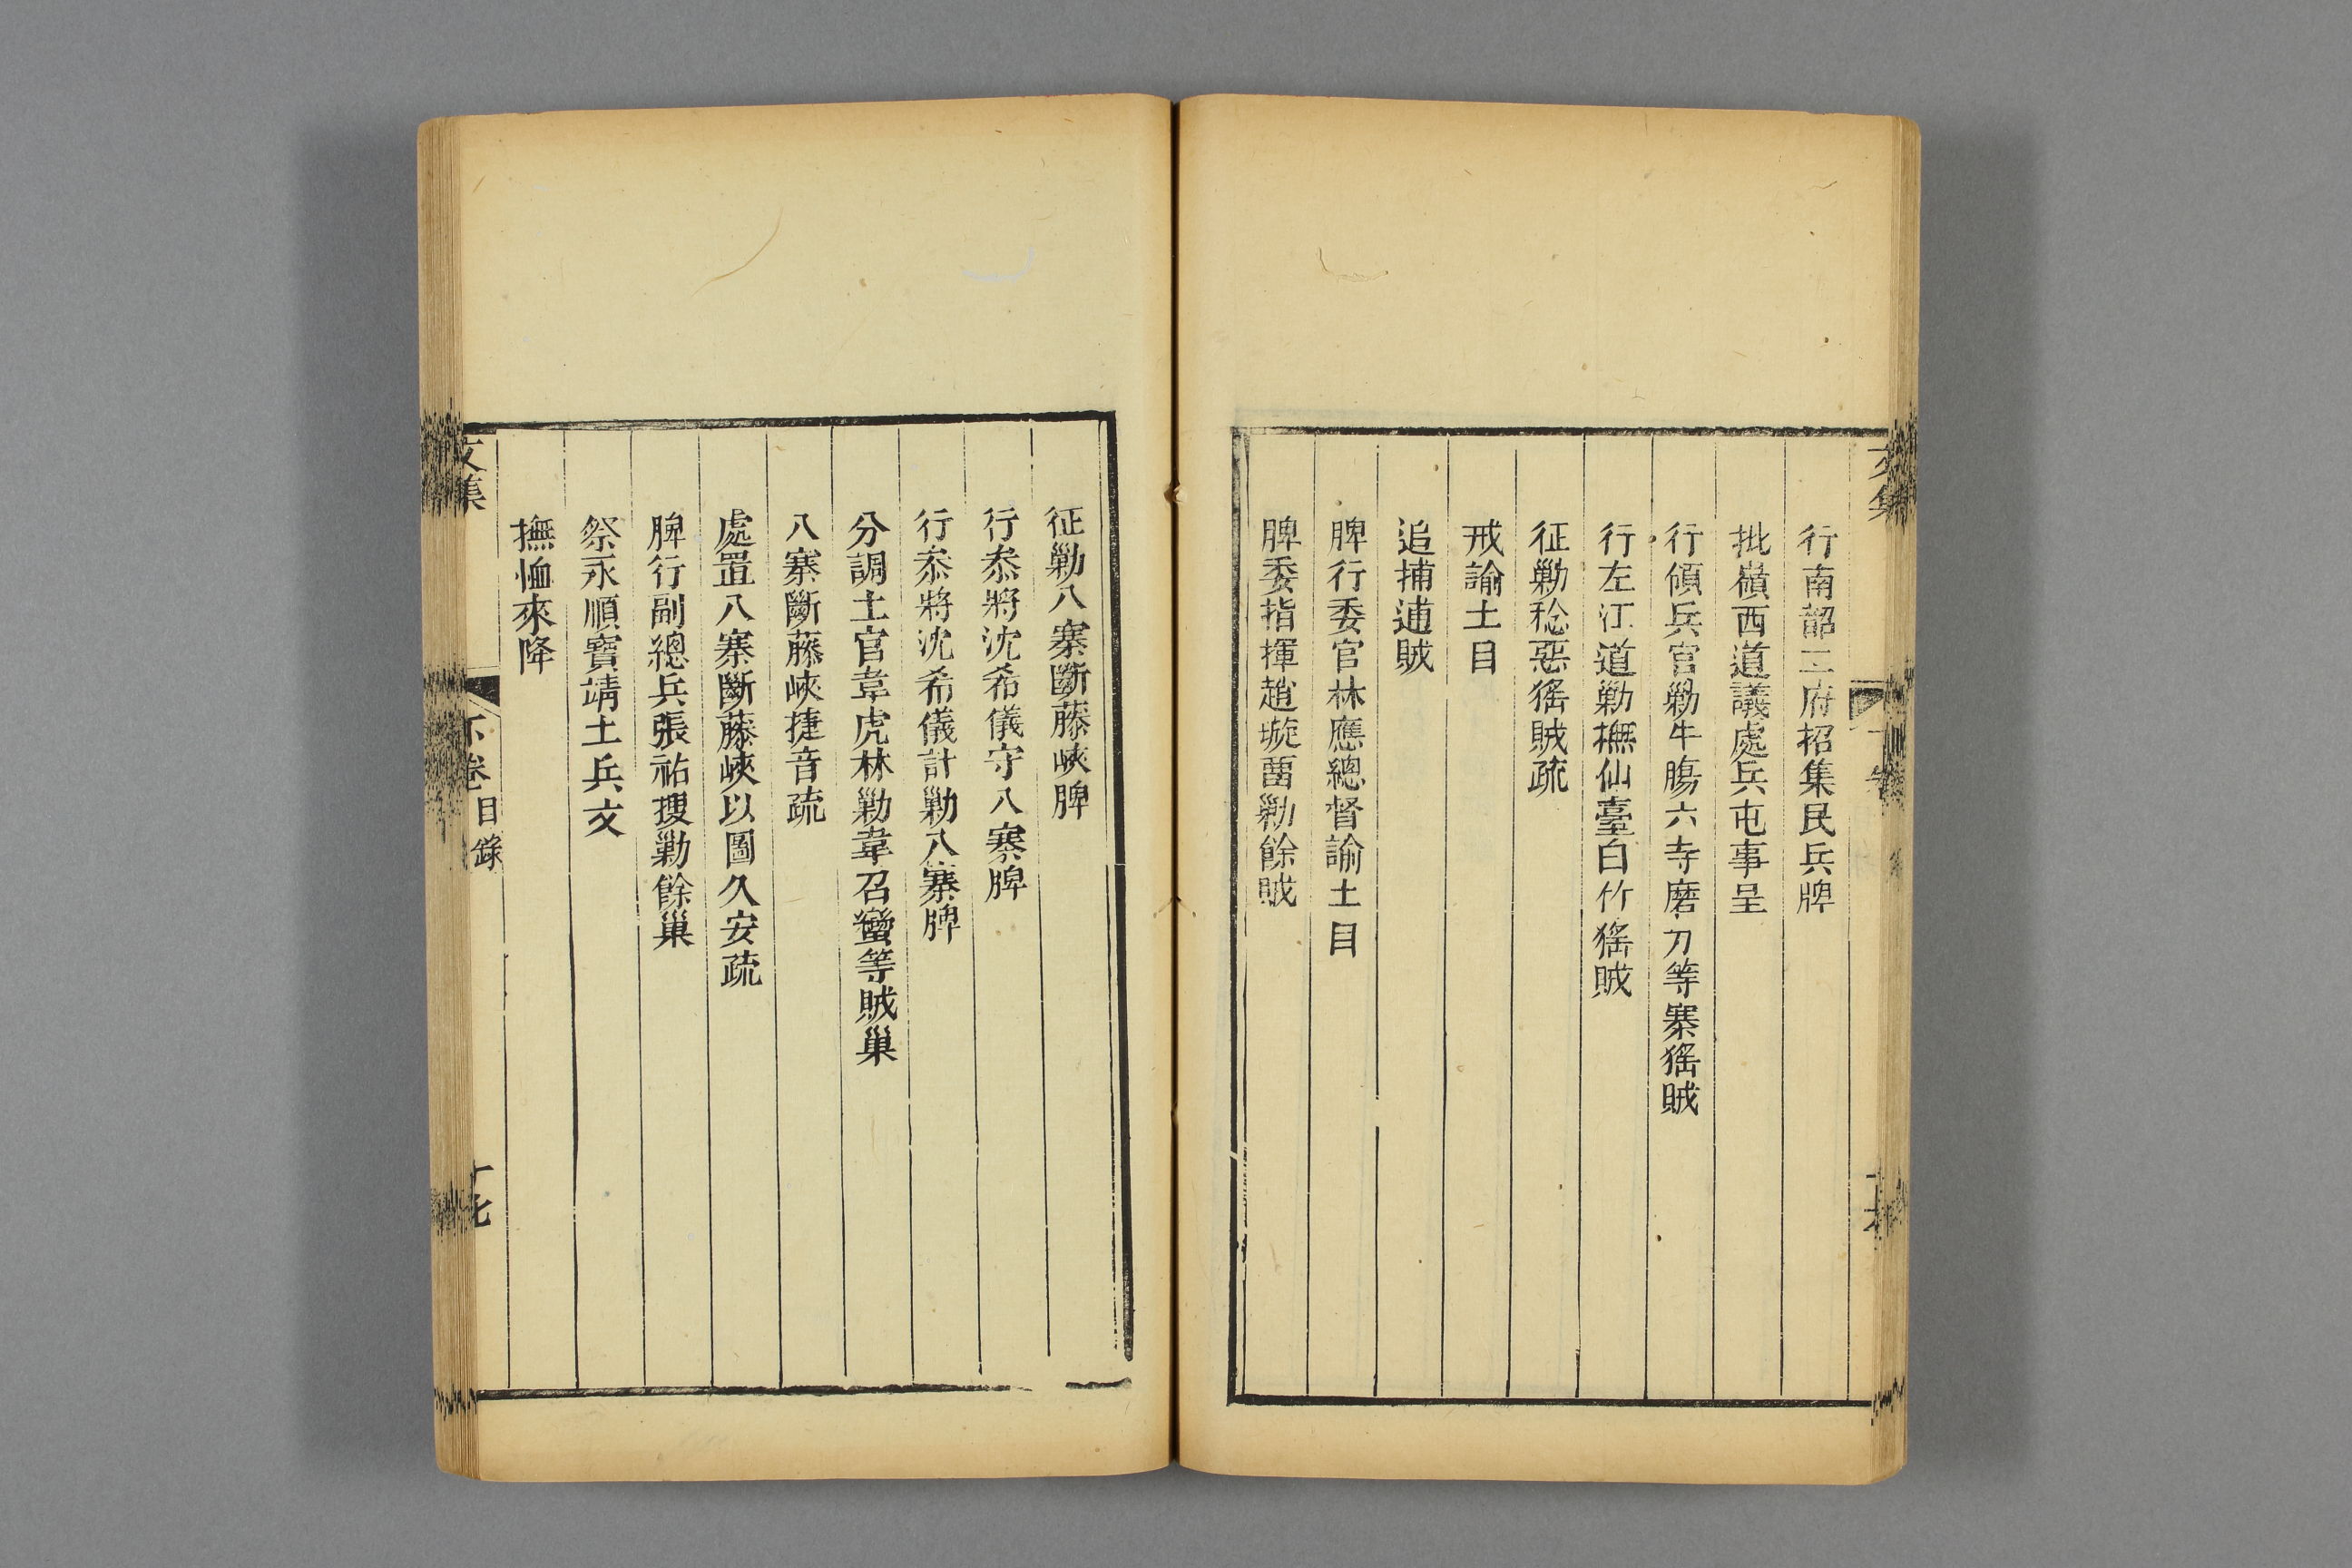 行南韶二府招集民兵牌
批嶺西道議處兵屯事呈
行領兵官勦牛膓六寺磨刀等寨猺賊
行左江道勦撫仙臺白竹猺賊
征勦稔惡猺賊疏
戒諭土目
追捕逋賊
牌行委官林應總督諭土目
牌委指揮趙璇畱勦餘賊
征勦八寨斷藤峽牌
行叅將沈希儀守八寨牌
行叅將沈希儀計勦八寨牌
分調土官韋虎林勦韋召蠻等賊巢
八寨斷藤峽捷音疏
處置八寨斷藤峽以圖久安疏
牌行副總兵張祐搜勦餘巢
祭永順寶靖土兵文
撫恤來降
文集 下卷目錄 十七